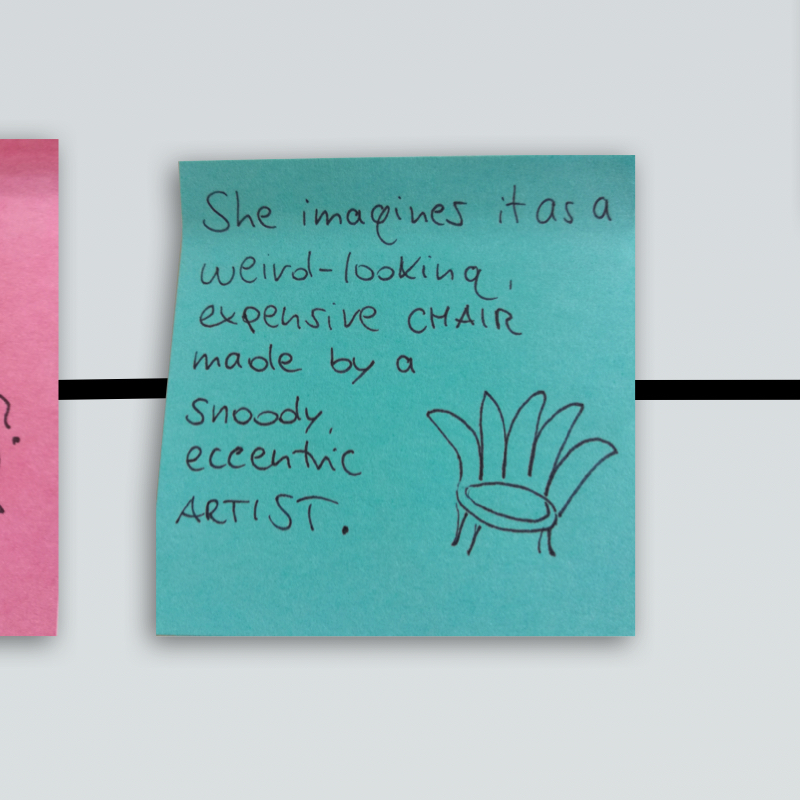 She imagines it as a
weird-looking,
expensive CHAIR
made by a
snoody,
eccentric
ARTIST.
?